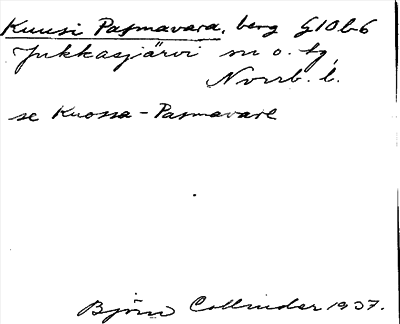 Kuusi Pasmavara, berg G10b6
Jukkasjärvi sn o. tg,
Norrb. l.
se Kuossa-Pasmavare
Björn Collinder 1937.